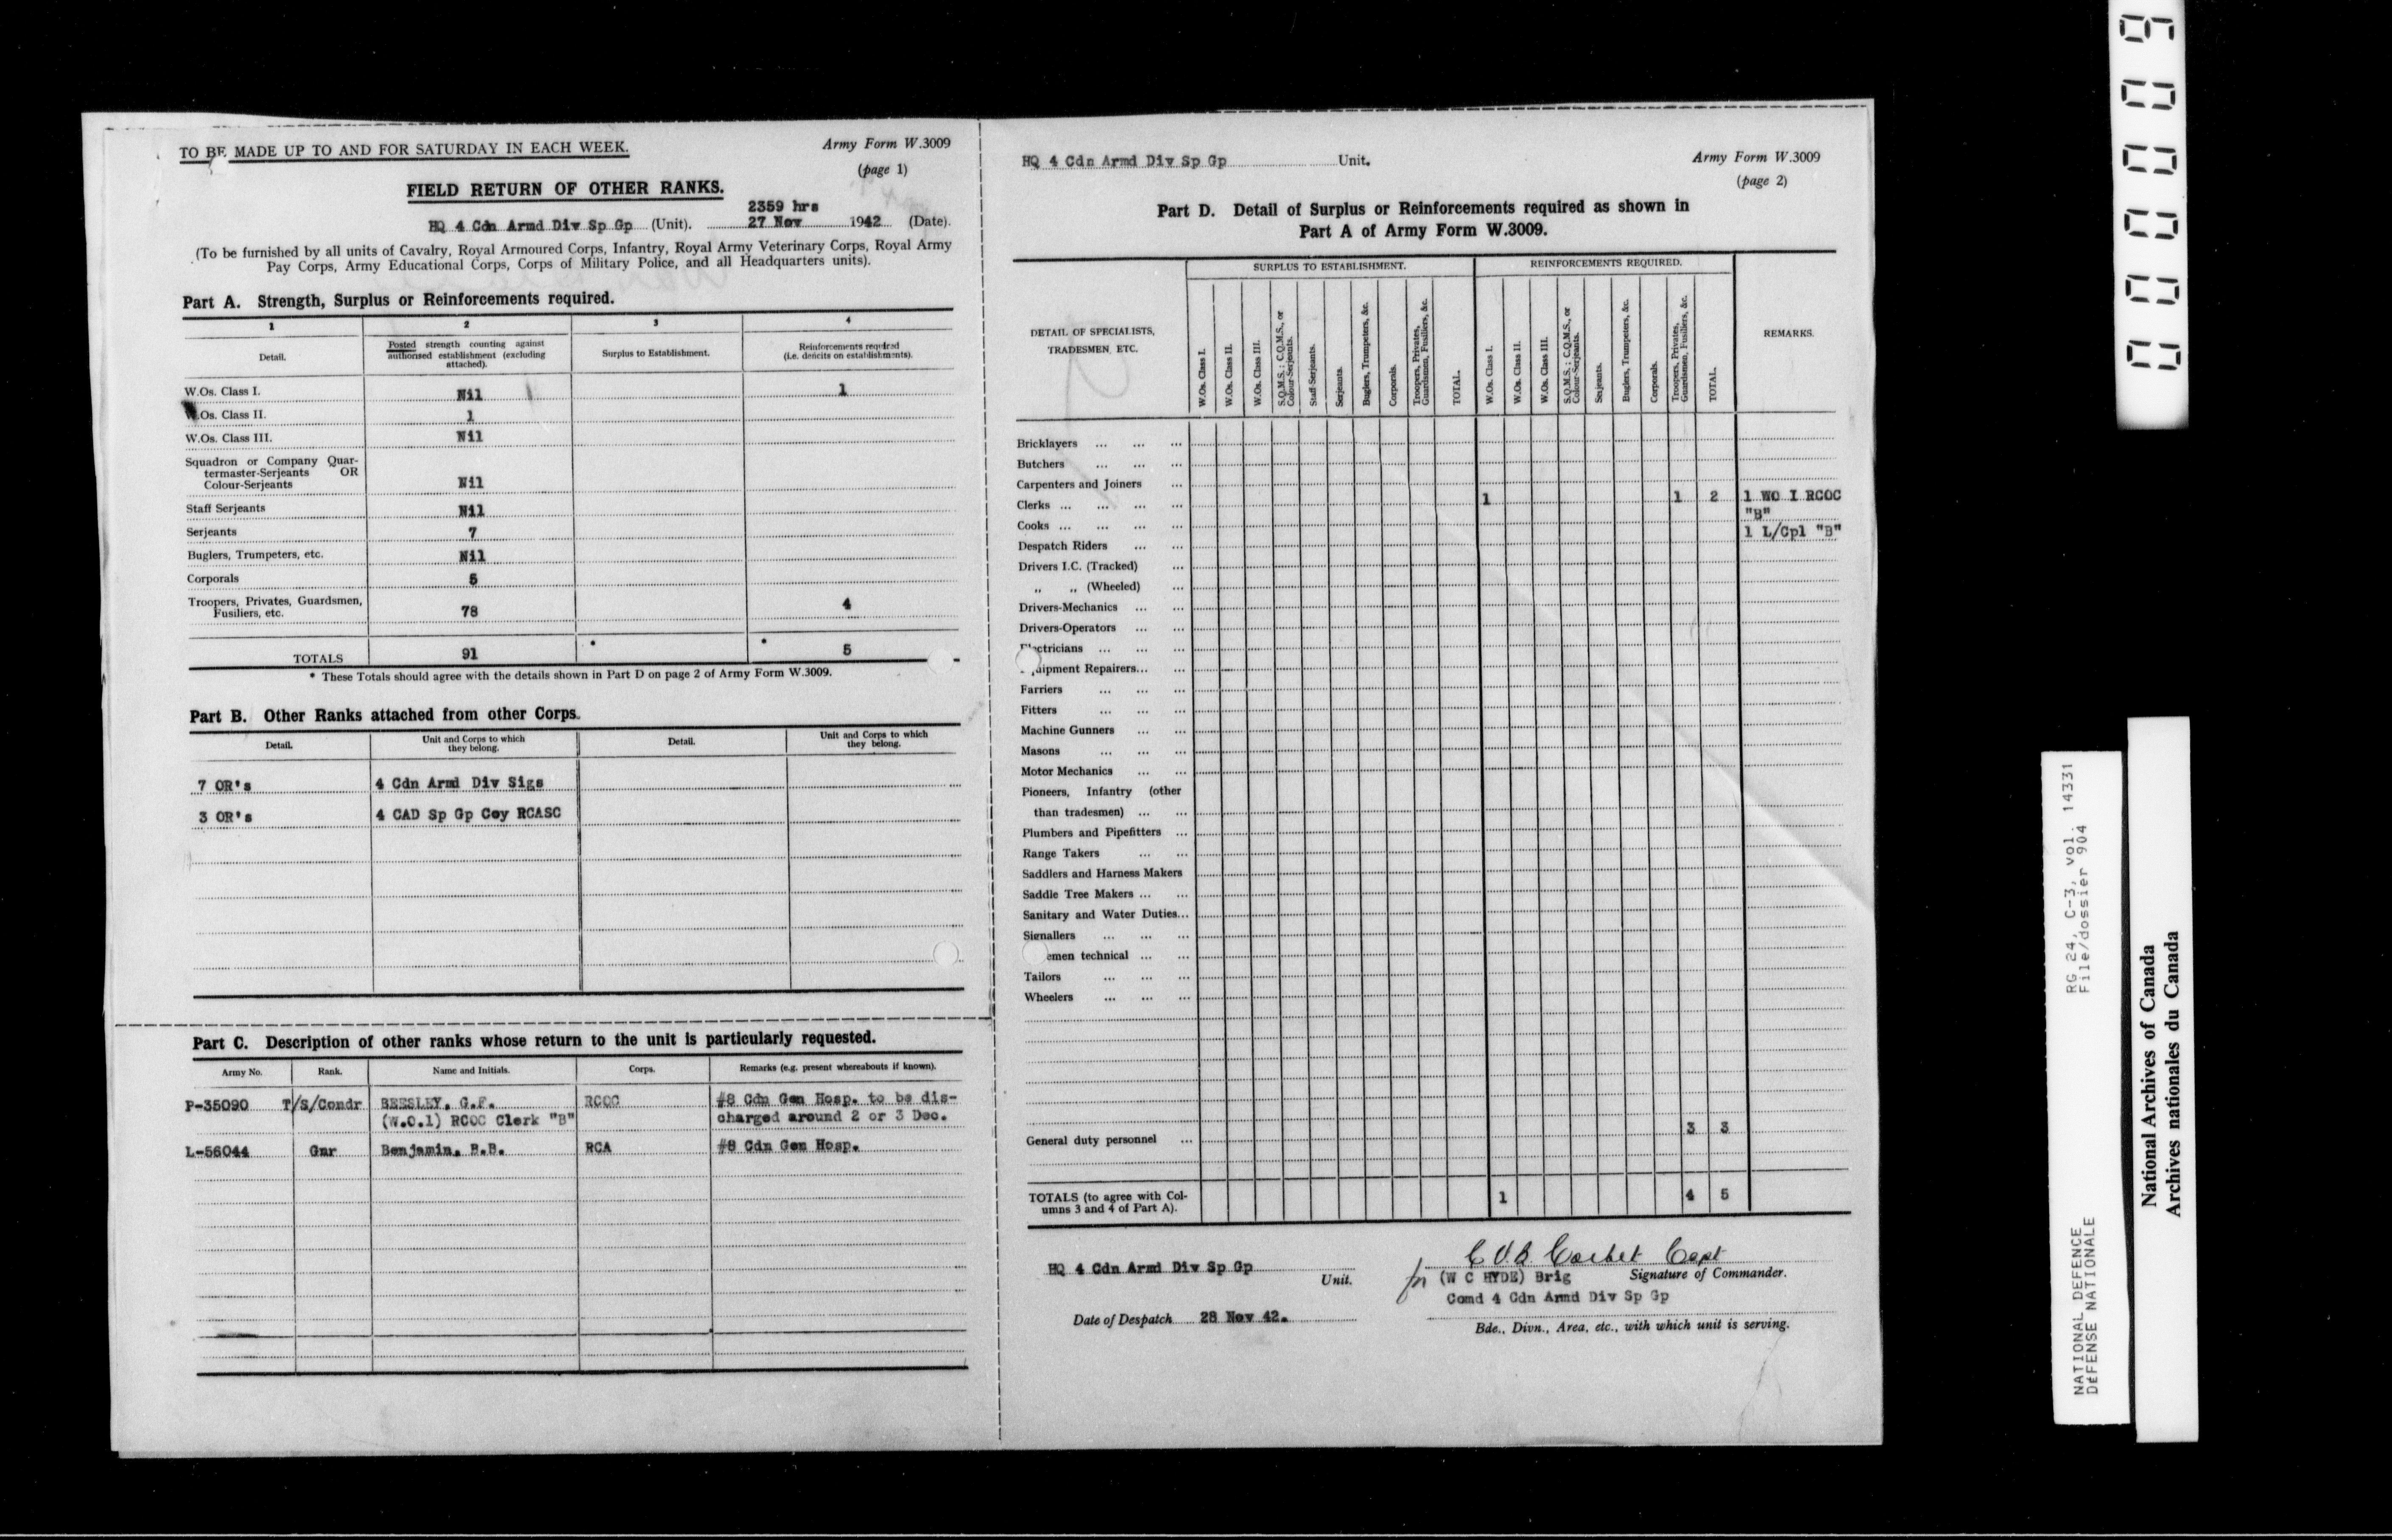 TO BE MADE UP TO AND FOR SATURDAY IN EACH WEEK.
Army Form W.3009
(page 1)
FIELD RETURN OF OTHER RANKS.
2359 hrs
HQ 4 Cdn Armd Div Sp Gp (Unit). 27 Nov 1942 (Date).
(To be furnished by all units of Cavalry, Royal Armoured Corps, Infantry, Royal Army Veterinary Corps, Royal Army
Pay Corps, Army Educational Corps, Corps of Military Police, and all Headquarters units).
Part A. Strength, Surplus or Reinforcements required.
1 2 3 4
Detail. Posted strength counting against authorised establishment (excluding attached). Surplus to Establishment. Reinforcements required (i.e. deficits on establishments).
W.Os. Class I. Nil 1
W.Os. Class II. 1
W.Os. Class III. Nil
Squadron or Company Quar-
termaster-Serjeants OR
Colour-Serjeants Nil
Staff Serjeants Nil
Serjeants 7
Buglers, Trumpeters, etc. Nil
Corporals 5
Troopers, Privates, Guardsmen,
Fusiliers, etc. 78 4
TOTALS 91 * * 5
* These Totals should agree with the details shown in Part D on page 2 of Army Form W.3009.
Part B. Other Ranks attached from other Corps.
Detail. Unit and Corps to which they belong. Detail. Unit and Corps to which they belong.
7 OR's 4 Cdn Armd Div Sigs
3 OR's 4 CAD Sp Gp Coy RCASC
Part C. Description of other ranks whose return to the unit is particularly requested.
Army No. Rank. Name and Initials. Corps. Remarks (e.g. present whereabouts if known).
P-35090 T/S/Condr BEESLEY, G.F. RCOC #8 Cdn Gen Hosp. to be dis-
(W.O.1) RCOC Clerk "B" charged around 2 or 3 Dec.
L-56044 Gnr Benjamin, B.B. RCA #8 Cdn Gen Hosp.
HQ 4 Cdn Armd Div Sp Gp Unit.
Army Form W.3009
(page 2)
Part D. Detail of Surplus or Reinforcements required as shown in
Part A of Army Form W.3009.
SURPLUS TO ESTABLISHMENT. REINFORCEMENTS REQUIRED.
DETAIL OF SPECIALISTS,
TRADESMEN, ETC.
W.Os. Class I.
W.Os. Class II.
W.Os. Class III.
S.Q.M.S.; C.Q.M.S., or Colour-Serjeants.
Staff-Serjeants.
Serjeants.
Buglers, Trumpeters, &c.
Corporals.
Troopers, Privates, Guardsmen, Fusiliers, &c.
TOTAL.
W.Os. Class I.
W.Os. Class II.
W.Os. Class III.
S.Q.M.S.; C.Q.M.S., or Colour-Serjeants.
Serjeants.
Buglers, Trumpeters, &c.
Corporals.
Troopers, Privates, Guardsmen, Fusiliers, &c.
TOTAL.
REMARKS.
Bricklayers ... ... ...
Butchers ... ... ...
Carpenters and Joiners ...
Clerks ... ... ... ... 1 1 2 1 WO I RCOC
"B"
Cooks ... ... ... ... 1 L/Cpl "B"
Despatch Riders ... ...
Drivers I.C. (Tracked) ...
„ „ (Wheeled) ...
Drivers-Mechanics ... ...
Drivers-Operators ... ...
ctricians ... ... ...
uipment Repairers... ...
Farriers ... ... ...
Fitters ... ... ...
Machine Gunners ... ...
Masons ... ... ...
Motor Mechanics ... ...
Pioneers, Infantry (other
than tradesmen) ... ...
Plumbers and Pipefitters ...
Range Takers ... ...
Saddlers and Harness Makers
Saddle Tree Makers ... ...
Sanitary and Water Duties...
Signallers ... ... ...
emen technical ... ...
Tailors ... ... ...
Wheelers ... ... ...
General duty personnel ... 3 3
TOTALS (to agree with Col-
umns 3 and 4 of Part A). 1 4 5
HQ 4 Cdn Armd Div Sp Gp
Unit.
C V B Corbet Capt
for (W C HYDE) Brig Signature of Commander.
Comd 4 Cdn Armd Div Sp Gp
Date of Despatch 28 Nov 42.
Bde., Divn., Area, etc., with which unit is serving.
NATIONAL DEFENCE RG 24, C-3, vol. 14331
DÉFENSE NATIONALE File/dossier 904
National Archives of Canada
Archives nationales du Canada